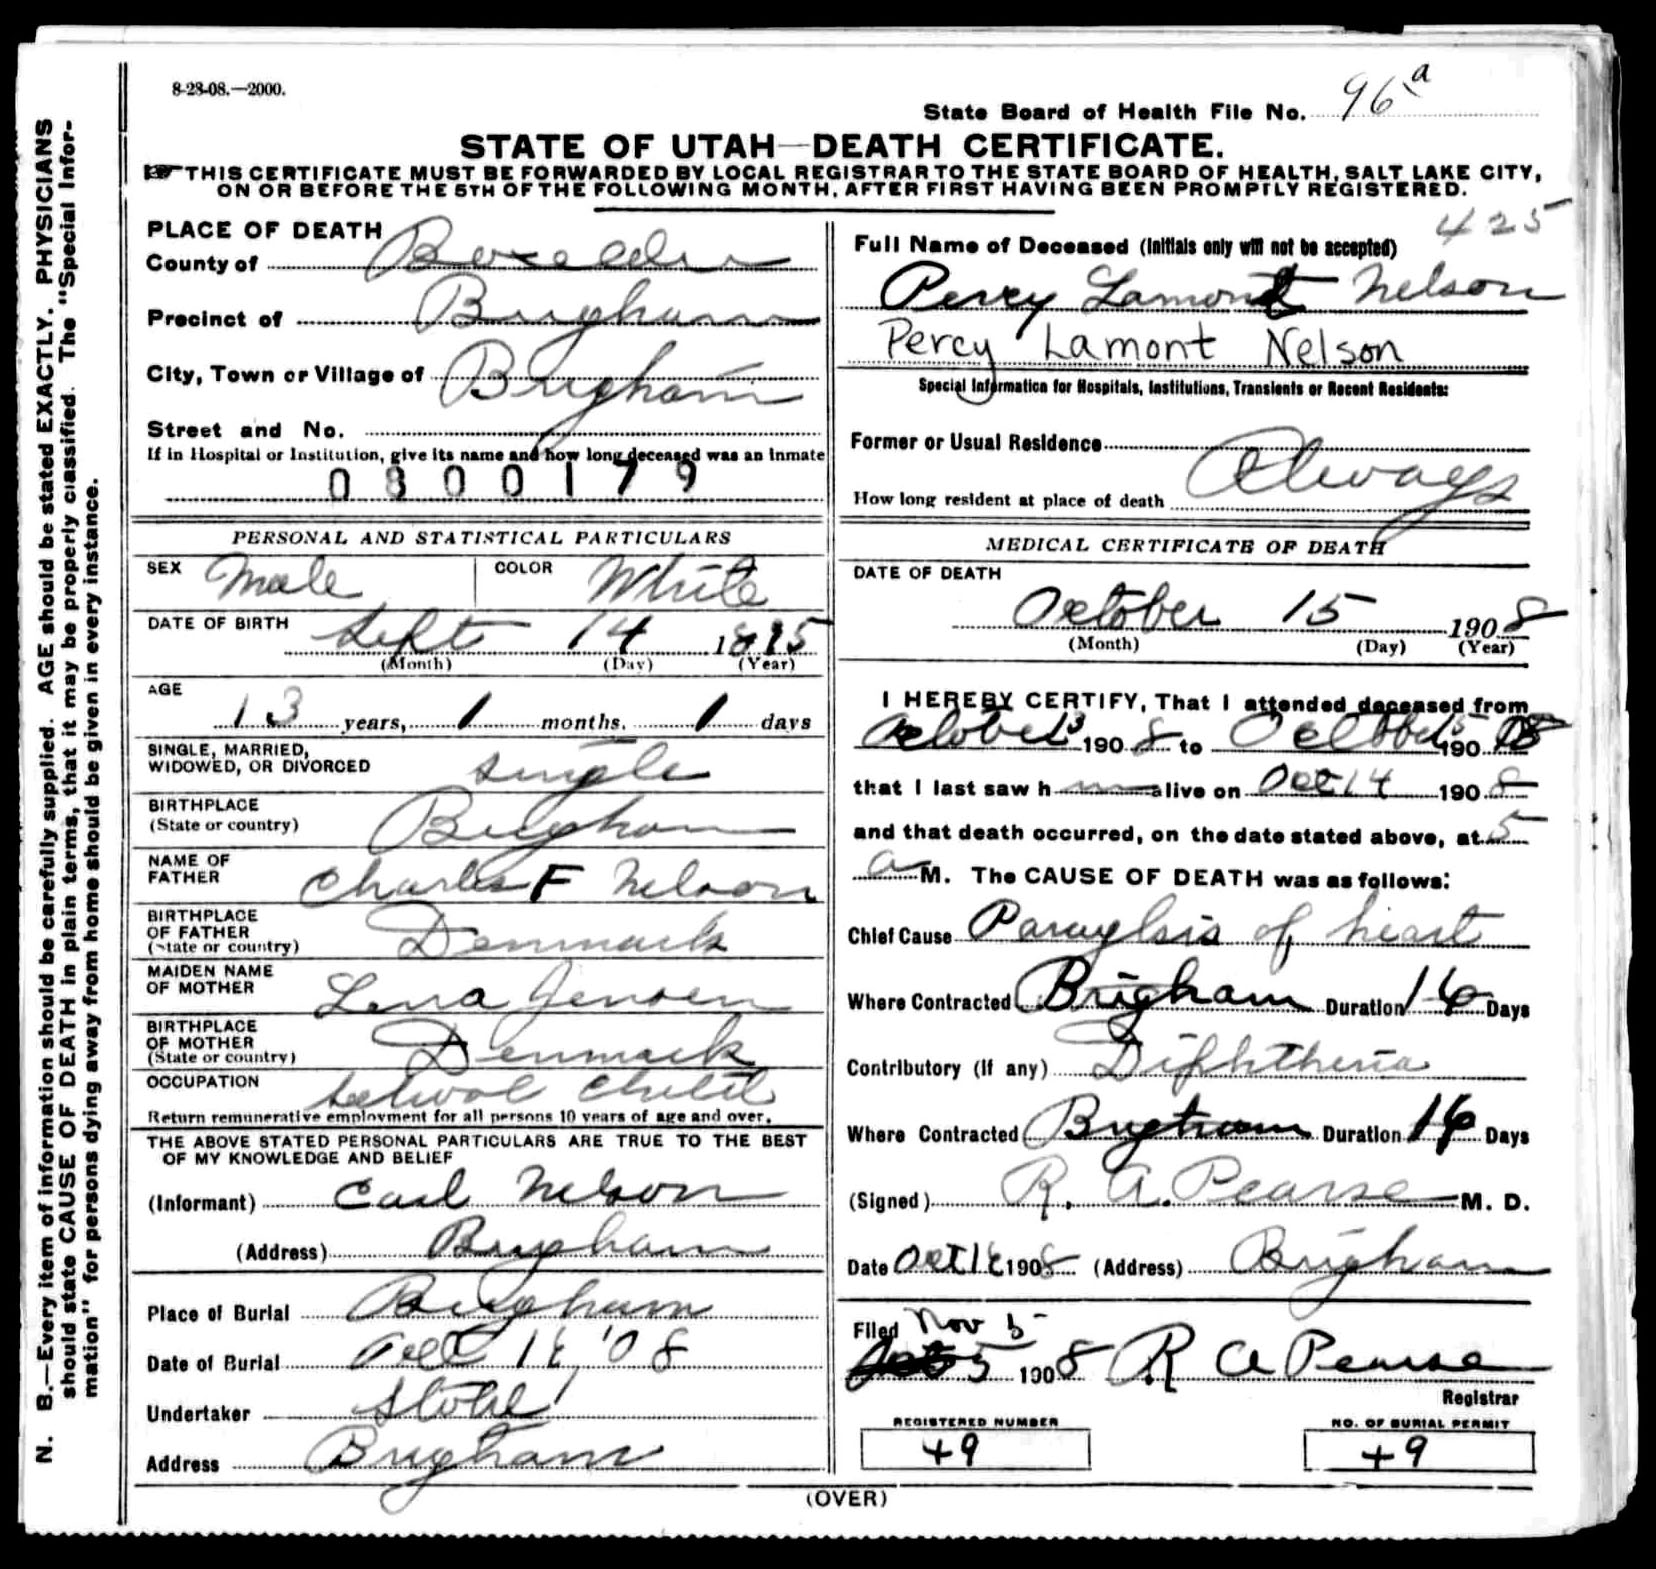 8-28-08.—2000.
State Board of Health File No. 96a
STATE OF UTAH—DEATH CERTIFICATE.
THIS CERTIFICATE MUST BE FORWARDED BY LOCAL REGISTRAR TO THE STATE BOARD OF HEALTH, SALT LAKE CITY,
ON OR BEFORE THE 5TH OF THE FOLLOWING MONTH, AFTER FIRST HAVING BEEN PROMPTLY REGISTERED.
N. B.—Every item of information should be carefully supplied. AGE should be stated EXACTLY. PHYSICIANS
should state CAUSE OF DEATH in plain terms, that it may be properly classified. The "Special Infor-
mation" for persons dying away from home should be given in every instance.
PLACE OF DEATH
County of Boxelder
Precinct of Brigham
City, Town or Village of Brigham
Street and No.
If in Hospital or Institution, give its name and how long deceased was an Inmate
0800179
PERSONAL AND STATISTICAL PARTICULARS
SEX Male COLOR White
DATE OF BIRTH Sept 14 1895
(Month) (Day) (Year)
AGE
13 years, 1 months. 1 days
SINGLE, MARRIED,
WIDOWED, OR DIVORCED single
BIRTHPLACE
(State or country) Brigham
NAME OF
FATHER Charles F Nelson
BIRTHPLACE
OF FATHER
(State or country) Denmark
MAIDEN NAME
OF MOTHER Lena Jensen
BIRTHPLACE
OF MOTHER
(State or country) Denmark
OCCUPATION School Child
Return remunerative employment for all persons 10 years of age and over.
THE ABOVE STATED PERSONAL PARTICULARS ARE TRUE TO THE BEST
OF MY KNOWLEDGE AND BELIEF
(Informant) Carl Nelson
(Address) Brigham
Place of Burial Brigham
Date of Burial Oct 16, '08
Undertaker
Address Brigham
425
Full Name of Deceased (Initials only will not be accepted)
Percy Lamont Nelson
Percy Lamont Nelson
Special Information for Hospitals, Institutions, Transients or Recent Residents:
Former or Usual Residence
Always
How long resident at place of death
MEDICAL CERTIFICATE OF DEATH
DATE OF DEATH
October 15 1908
(Month) (Day) (Year)
I HEREBY CERTIFY, That I attended deceased from
October 13 1908 to October 15 1908
that I last saw h im alive on Oct 14 1908
and that death occurred, on the date stated above, at 5
a M. The CAUSE OF DEATH was as follows:
Chief Cause Paraylsis of heart
Where Contracted Brigham Duration Days
Contributory (If any) Diphtheria
Where Contracted Brigham Duration Days
(Signed) R. A. Pearse M. D.
Date Oct 16 1908 (Address) Brigham
Filed Nov 5
5 1908 R A Pearse
Registrar
REGISTERED NUMBER
49
NO. OF BURIAL PERMIT
49
(OVER)